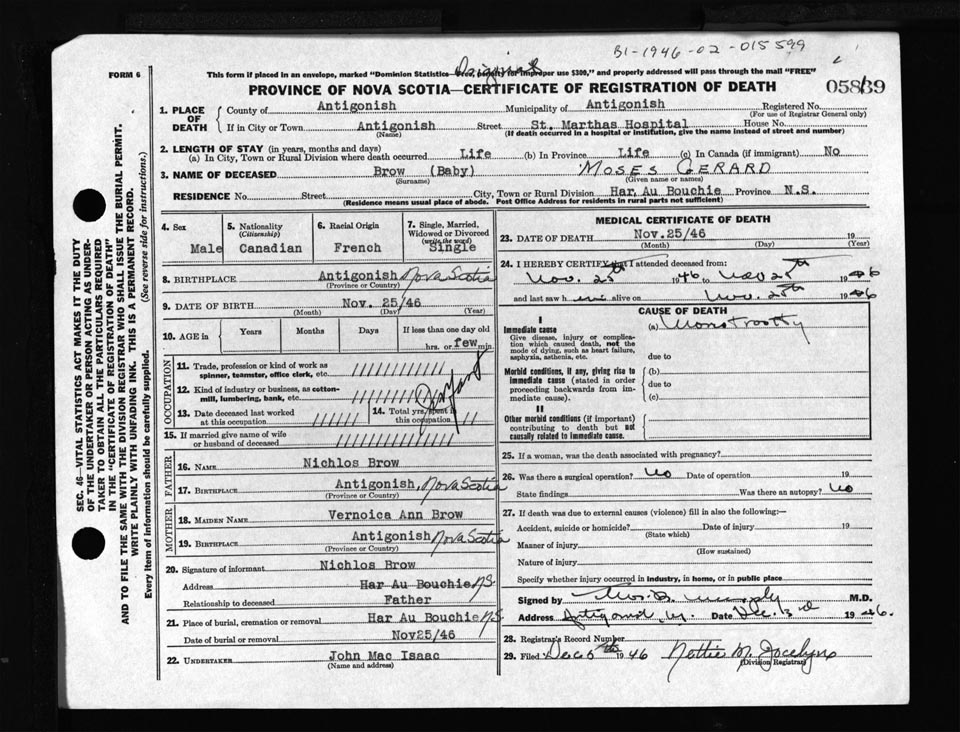 B1-1946-02-015599
Original
FORM 6
This form if placed in an envelope, marked "Dominion Statistics— penalty for improper use $300," and properly addressed will pass through the mail "FREE"
PROVINCE OF NOVA SCOTIA—CERTIFICATE OF REGISTRATION OF DEATH
1. PLACE OF DEATH { County of Antigonish Municipality of Antigonish Registered No.
(For use of Registrar General only)
If in City or Town Antigonish Street St. Marthas Hospital House No.
(Name) (If death occurred in a hospital or institution, give the name instead of street and number)
2. LENGTH OF STAY (in years, months and days)
(a) In City, Town or Rural Division where death occurred Life (b) In Province Life (c) In Canada (if immigrant) No
3. NAME OF DECEASED Brow (Baby) MOSES GERARD
(Surname) (Given name or names)
RESIDENCE No. Street City, Town or Rural Division Har. Au Bouchie Province N.S.
(Residence means usual place of abode. Post Office Address for residents in rural parts not sufficient)
4. Sex Male
5. Nationality (Citizenship) Canadian
6. Racial Origin French
7. Single, Married, Widowed or Divorced (write the word) Single
8. BIRTHPLACE Antigonish Nova Scotia
(Province or Country)
9. DATE OF BIRTH Nov. 25/46
(Month) (Day) (Year)
10. AGE in { Years Months Days If less than one day old
hrs. or few min.
OCCUPATION
11. Trade, profession or kind of work as
spinner, teamster, office clerk, etc. ////////////
12. Kind of industry or business, as cotton-
mill, lumbering, bank, etc. ////////////
13. Date deceased last worked
at this occupation //////
14. Total yrs. spent in
this occupation //////
15. If married give name of wife
or husband of deceased ////////////
FATHER
16. NAME Nichlos Brow
17. BIRTHPLACE Antigonish, Nova Scotia
(Province or Country)
MOTHER
18. MAIDEN NAME Vernoica Ann Brow
19. BIRTHPLACE Antigonish Nova Scotia
(Province or Country)
20. Signature of informant Nichlos Brow
Address Har Au Bouchie N.S.
Relationship to deceased Father
21. Place of burial, cremation or removal Har Au Bouchie N.S.
Date of burial or removal Nov25/46
22. UNDERTAKER John Mac Isaac
(Name and address)
MEDICAL CERTIFICATE OF DEATH
23. DATE OF DEATH Nov.25/46 19
(Month) (Day) (Year)
24. I HEREBY CERTIFY that I attended deceased from:
Nov. 25th 1946 to Nov 25th 1946
and last saw him alive on Nov. 25th 1946
CAUSE OF DEATH
I
Immediate cause (a)
Give disease, injury or complica-
tion which caused death, not the
mode of dying, such as heart failure,
asphyxia, asthenia, etc. due to
Morbid conditions, if any, giving rise to (b)
immediate cause (stated in order due to
proceeding backwards from im-
mediate cause). (c)
II
Other morbid conditions (if important)
contributing to death but not
causally related to immediate cause.
25. If a woman, was the death associated with pregnancy?
26. Was there a surgical operation? No Date of operation 19
State findings Was there an autopsy? No
27. If death was due to external causes (violence) fill in also the following:—
Accident, suicide or homicide? Date of injury 19
(State which)
Manner of injury
(How sustained)
Nature of injury
Specify whether injury occurred in industry, in home, or in public place
Signed by M.D.
Address Date Dec. 3rd 1946.
28. Registrar's Record Number
29. Filed Dec 5th 1946 Nettie M. Jocelyn
(Division Registrar)
SEC. 46—VITAL STATISTICS ACT MAKES IT THE DUTY
OF THE UNDERTAKER OR PERSON ACTING AS UNDER-
TAKER TO OBTAIN ALL THE PARTICULARS REQUIRED
IN THE "CERTIFICATE OF REGISTRATION OF DEATH"
AND TO FILE THE SAME WITH THE DIVISION REGISTRAR WHO SHALL ISSUE THE BURIAL PERMIT.
WRITE PLAINLY WITH UNFADING INK. THIS IS A PERMANENT RECORD.
Every item of information should be carefully supplied. (See reverse side for instructions.)